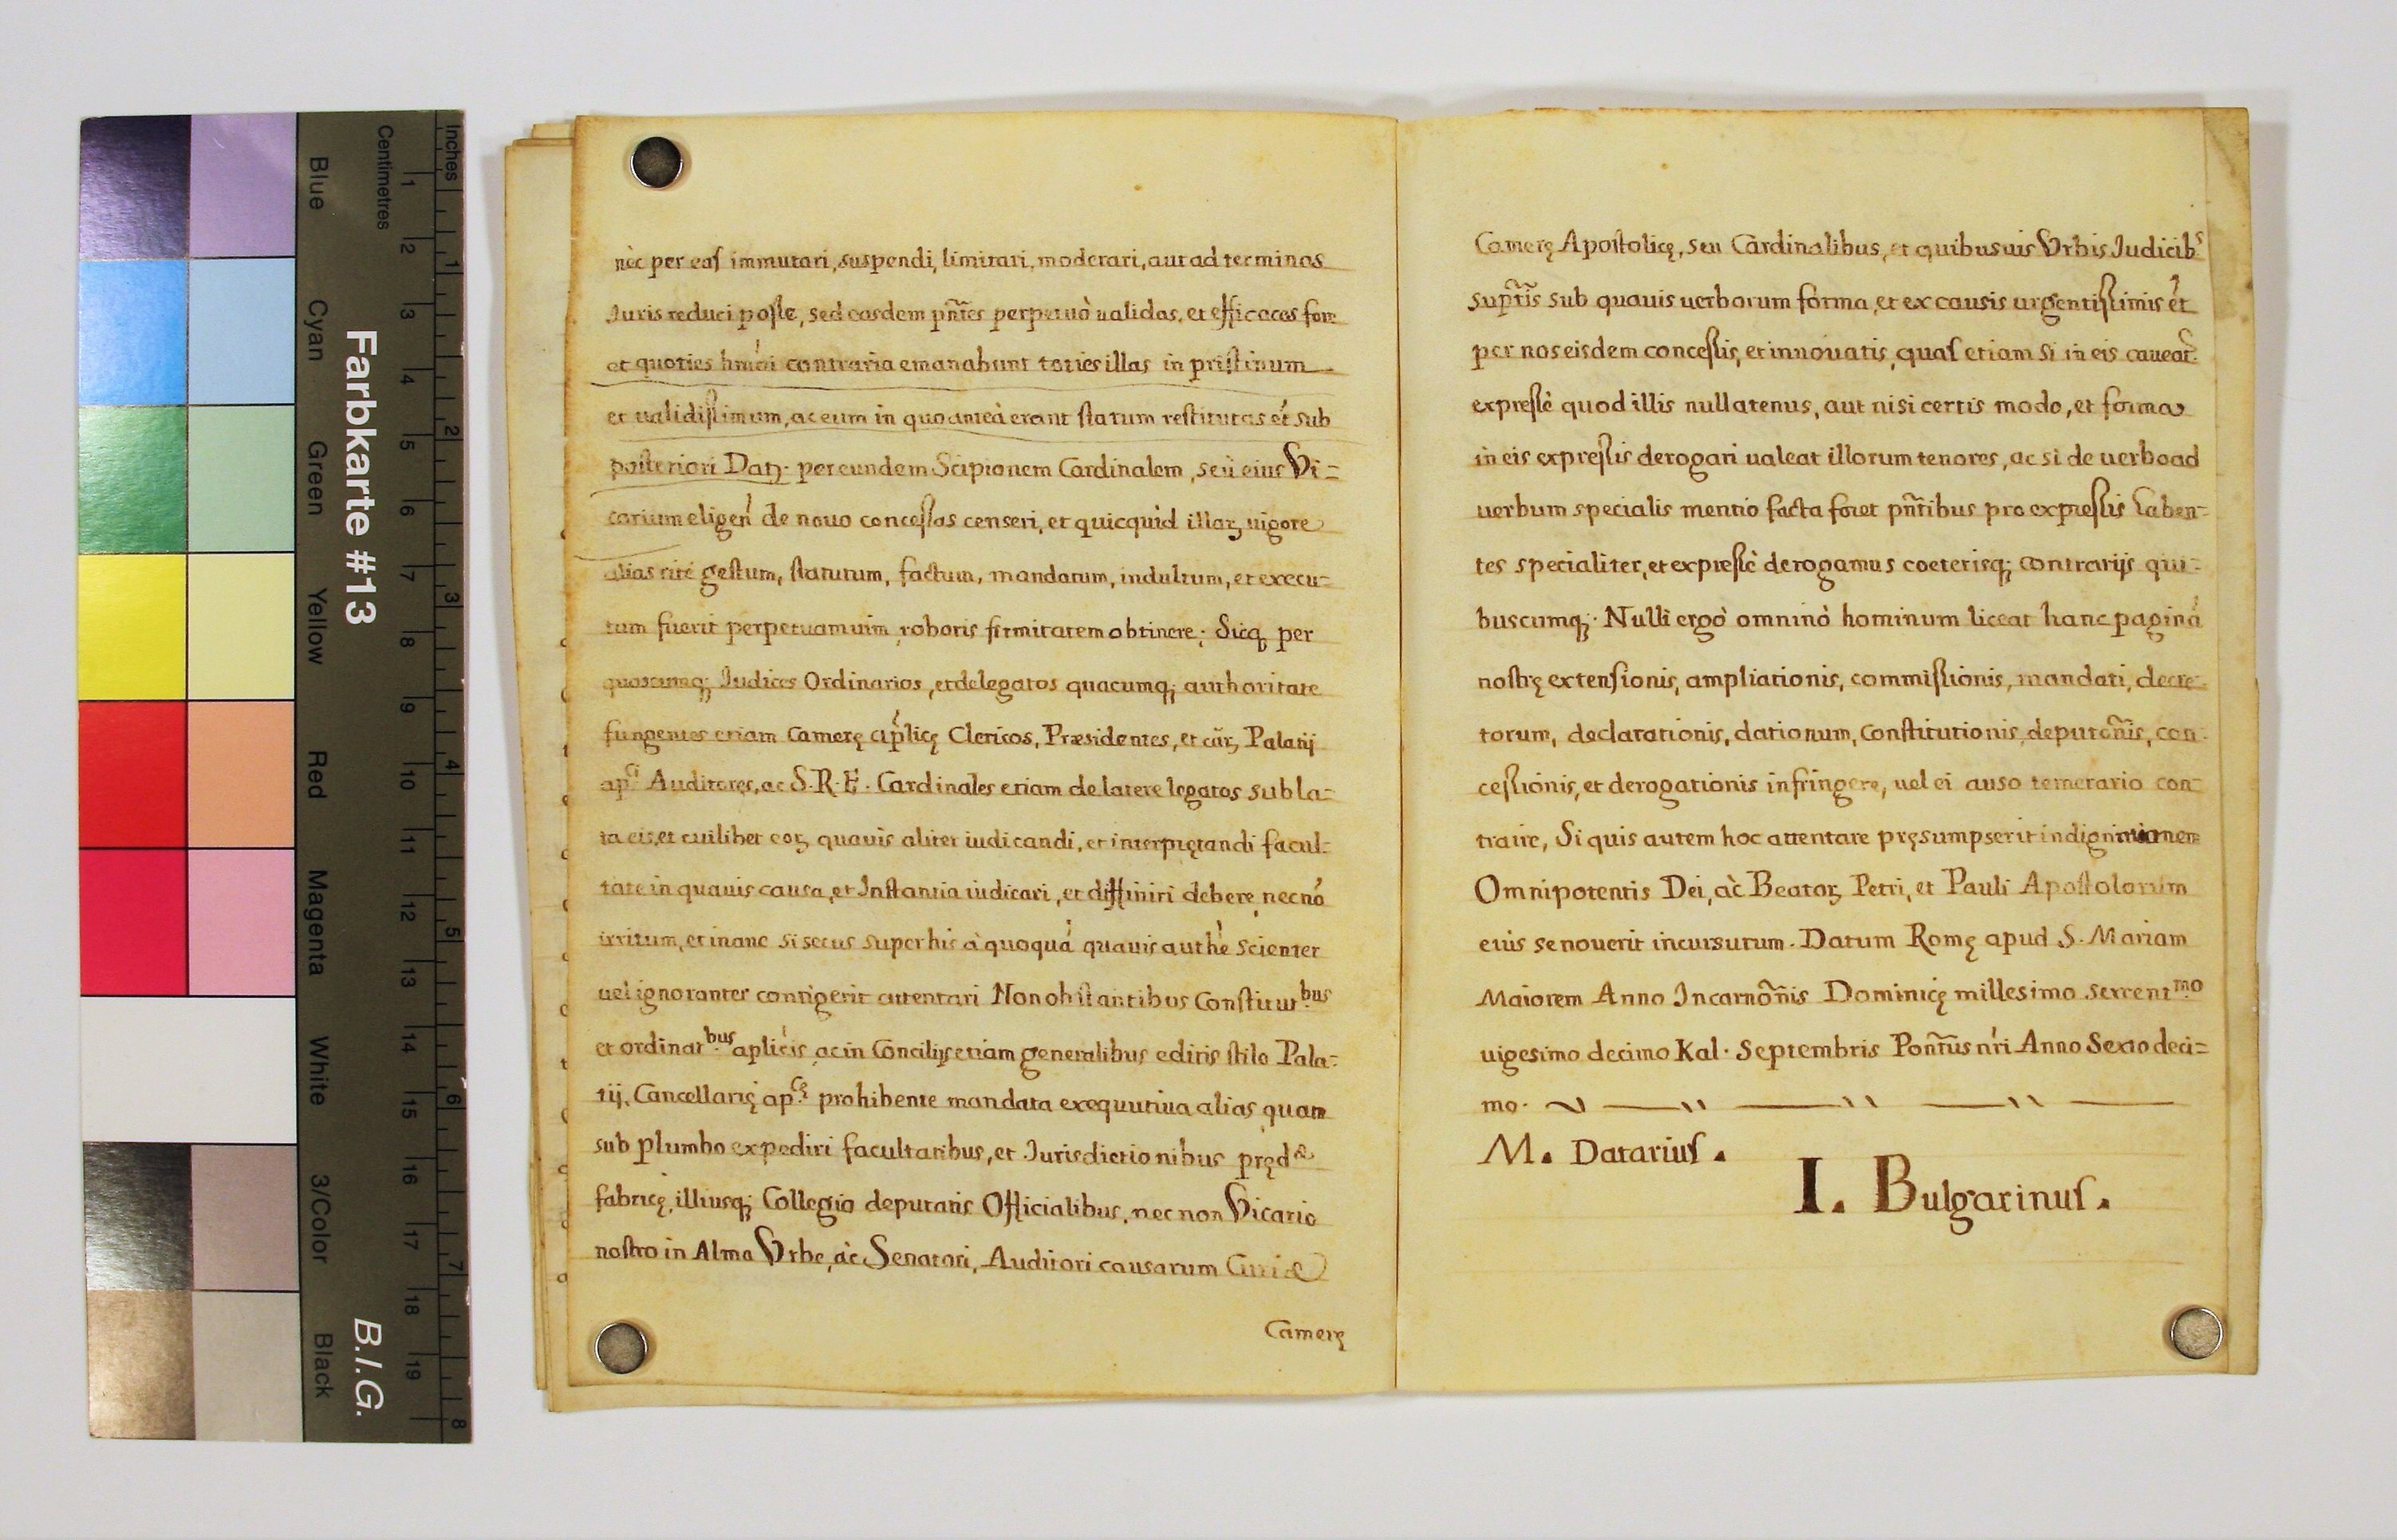 Inches
Centimetres
1 2 3 4 5 6 7 8 9 10 11 12 13 14 15 16 17 18 19
1 2 3 4 5 6 7 8
Farbkarte #13
B.I.G.
Blue
Cyan
Green
Yellow
Red
Magenta
White
3/Color
Black
nec per eas immutari, suspendi, limitari, moderari, aut ad terminos
Juris reduci posse, sed easdem pñtes perpetuò ualidas, et efficaces fore
et quoties hmõi contraria emanabunt toties illas in pristinum
et ualidissimum, ac eum in quo anteà erant statum restitutas et sub
posteriori Datꝫ. per eundem Scipionem Cardinalem, seu eius Vi=
carium eligen de nouo concessas censeri, et quicquid illaꝝ uigore
alias rite gestum, statutum, factum, mandatum, indultum, et execu=
tum fuerit perpetuam uim roboris firmitatem obtinere; Sicq per
quoscumq; Judices Ordinarios, et delegatos quacumq; authoritate
fungentes etiam Camerę aplicę Clericos, Præsidentes, et cãꝝ Palatij
apci Auditores, ac S. R. E. Cardinales etiam de latere legatos subla=
ta eis, et cuilibet eoꝝ quauis aliter iudicandi, et interpretandi facul:
tate in quauis causa, et Instantia iudicari, et diffiniri debere, necnõ
irritum, et inane si secus super his à quoquã quauis authe scienter
uel ignoranter contigerit attentari Non obstantibus Constitutbus
et ordinatbus aplicis ac in Concilijs etiam generalibus editis stilo Pala:
tij, Cancellarię apcę prohibente mandata exequutiua alias quam
sub plumbo expediri facultatibus, et Jurisdictionibus pręd
fabricę, illiusq; Collegio deputatis Officialibus, nec non Vicario
nostro in Alma Vrbe, ac Senatori, Auditori causarum Curiæ
Camerę
Camerę Apostolicę, seu Cardinalibus, et quibusuis Vrbis Judicibs
suprtis sub quauis uerborum forma, et ex causis urgentissimis et
per nos eisdem concessis, et innouatis, quas etiam si in eis caueat.
expressè quod illis nullatenus, aut nisi certis modo, et forma
in eis expressis derogari ualeat illorum tenores, ac si de uerbo ad
uerbum specialis mentio facta foret pñtibus pro expressis haben=
tes specialiter, et expressè derogamus coeterisq; contrarijs qui=
buscumq;. Nulli ergò omninò hominum liceat hanc paginã
nostrę extensionis, ampliationis, commissionis, mandati, decre=
torum, declarationis, dationum, Constitutionis, deputõnis, con=
cessionis, et derogationis infringere, uel ei auso temerario con=
traire, Si quis autem hoc attentare pręsumpserit indignationem
Omnipotentis Dei, ac Beatoꝝ Petri, et Pauli Apostolorum
eius se nouerit incursurum. Datum Romę apud S. Mariam
Maiorem Anno Incarnõnis Dominicę millesimo sexcentmo
uigesimo decimo Kal. Septembris Pontũs nri Anno Sexto deci=
mo.
M. Datarius.
I. Bulgarinus.